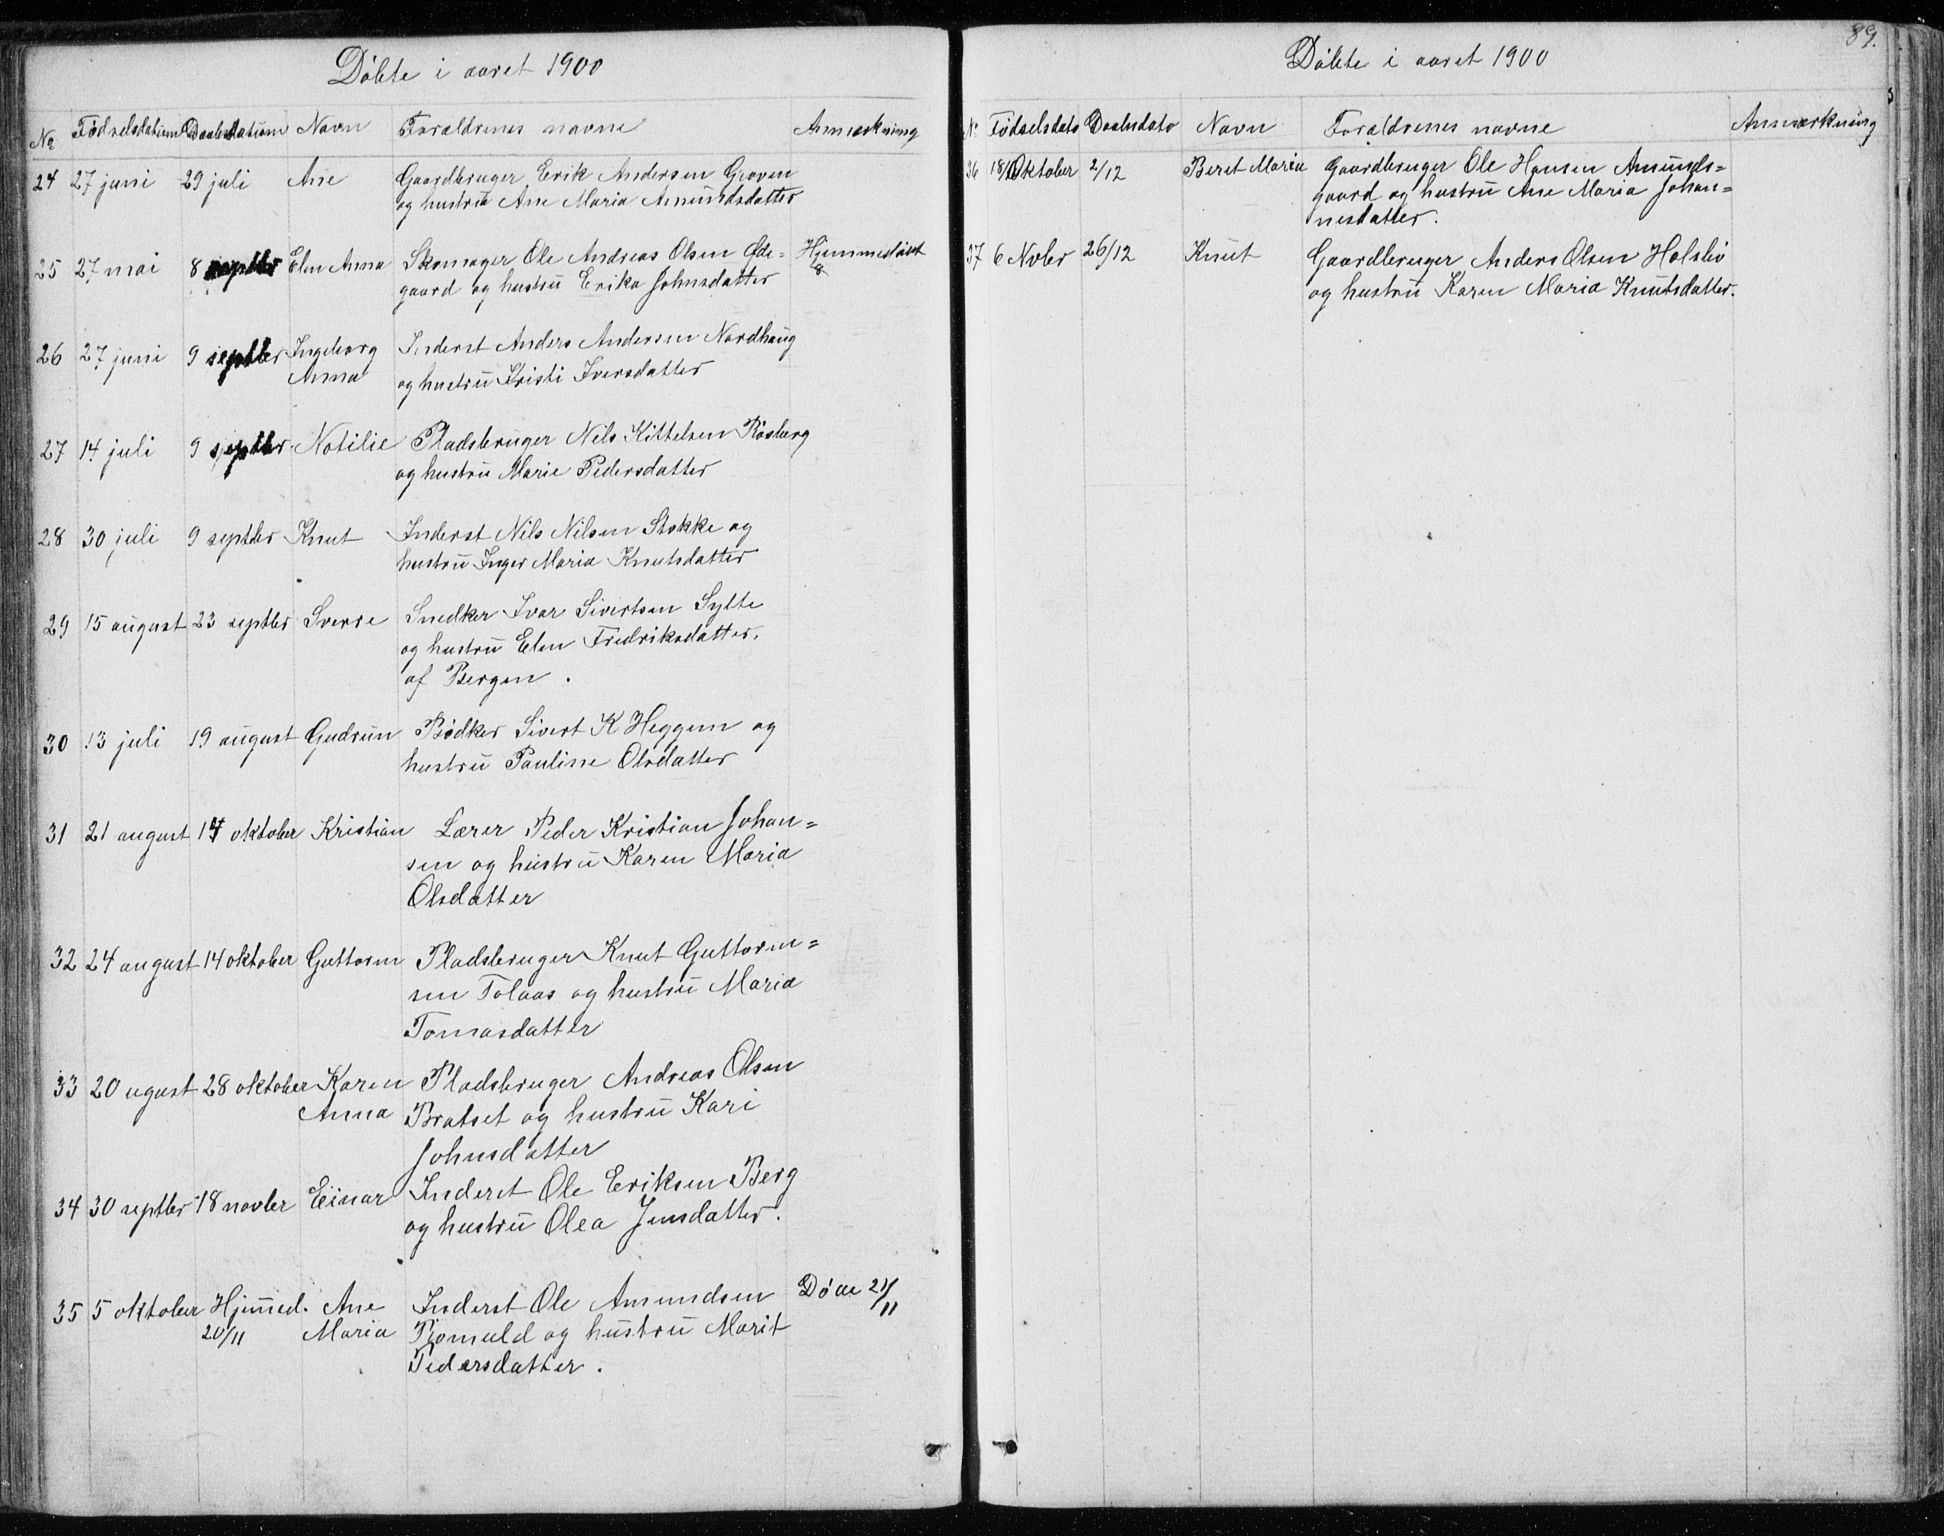 Döbte i aaret 1900
No Fødselsdatum Daabsdatum Navn Foraldrenes navne Anmærkning
24 27 juni 29 juli Ane Gaardbruger Erik Andersen Groven
og hustru Ane Maria Amundsdatter
25 27 mai 8 septbr Elen Anna Skomager Ole Andreas Olsen Øde= Hjemmedöbt
gaard og hustru Erika Johnsdatter
26 27 juni 9 septbr Ingeborg Inderst Anders Andersen Nordhaug
Anna og hustru Kristi Iversdatter
27 14 juli 9 septbr Notilie Pladsbruger Nils Kittelsen Røsberg
og hustru Marie Pedersdatter
28 30 juli 9 septbr Knut Inderst Nils Nilsen Stokke og
hustru Inger Maria Knutsdatter
29 15 august 23 septbr Sverre Snedker Ivar Sivertsen Sylte
og hustru Elen Fredriksdatter.
af Bergen.
30 13 juli 19 august Gudrun Bødker Sivert K Heggem og
hustru Pauline Olsdatter
31 21 august 14 oktober Kristian Lærer Peder Kristian Johan=
sen og hustru Karen Maria
Olsdatter
32 24 august 14 oktober Guttorm Pladsbruger Knut Guttorm=
sen Tolaas og hustru Maria
Tomasdatter
33 20 ugust 28 oktober Karen Pladsbruger Andreas Olsen
Anna Bratset og hustru Kari
Johnsdatter
34 30 septbr 18 novbr Einar Inderst Ole Eriksen Berg
og hustru Olea Jensdatter.
35 5 oktober Hjemed. Ane Inderst Ole Amundsen Döde 21/11
20/11 Maria og hustru Marit
Pedersdatter.
89.
Döbte i aaret 1900
No Fødselsdato Daabsdato Navn Foraldrenes navne Anmærkning
36 18 Oktober 2/12 Beret Maria Gaardbruger Ole Hansen Amunds=
gaard og hustru Ane Maria Johan=
nesdatter.
37 6 Novbr 26/12 Knut Gaardbruger Anders Olsen Holsbö
og hustru Karen Maria Knutsdatter.